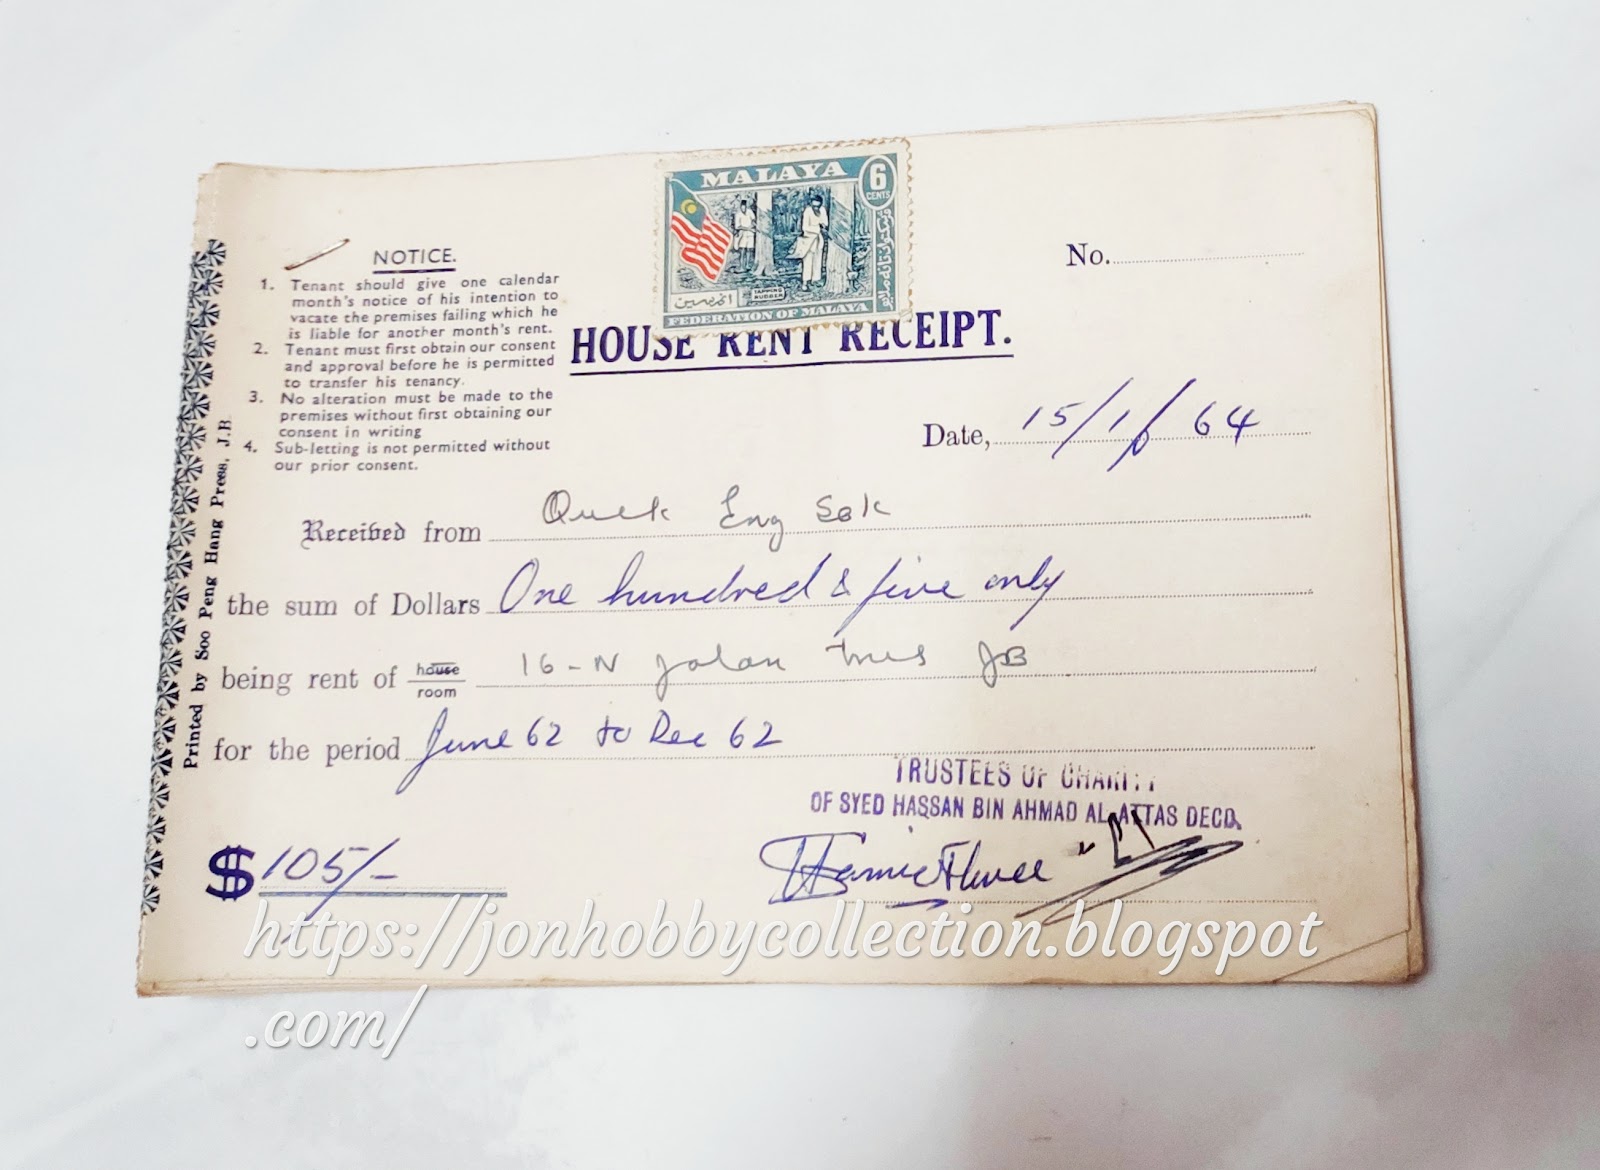 MALAYA
6
CENTS
TAPPING
RUBBER
FEDERATION OF MALAYA
NOTICE.
1. Tenant should give one calendar
month's notice of his intention to
vacate the premises failing which he
is liable for another month's rent.
2. Tenant must first obtain our consent
and approval before he is permitted
to transfer his tenancy.
3. No alteration must be made to the
premises without first obtaining our
consent in writing
4. Sub-letting is not permitted without
our prior consent.
No.
HOUSE RENT RECEIPT.
Date, 15/1/64
Received from Quek Eng Sek
the sum of Dollars One hundred & five only
being rent of house
room
16-N Jalan JB
for the period June 62 to Dec 62
TRUSTEES OF CHARITY
OF SYED HASSAN BIN AHMAD AL-ATTAS DECD.
$ 105/-
Printed by Soo Peng Hang Press, J.B
https://jonhobbycollection.blogspot
.com/